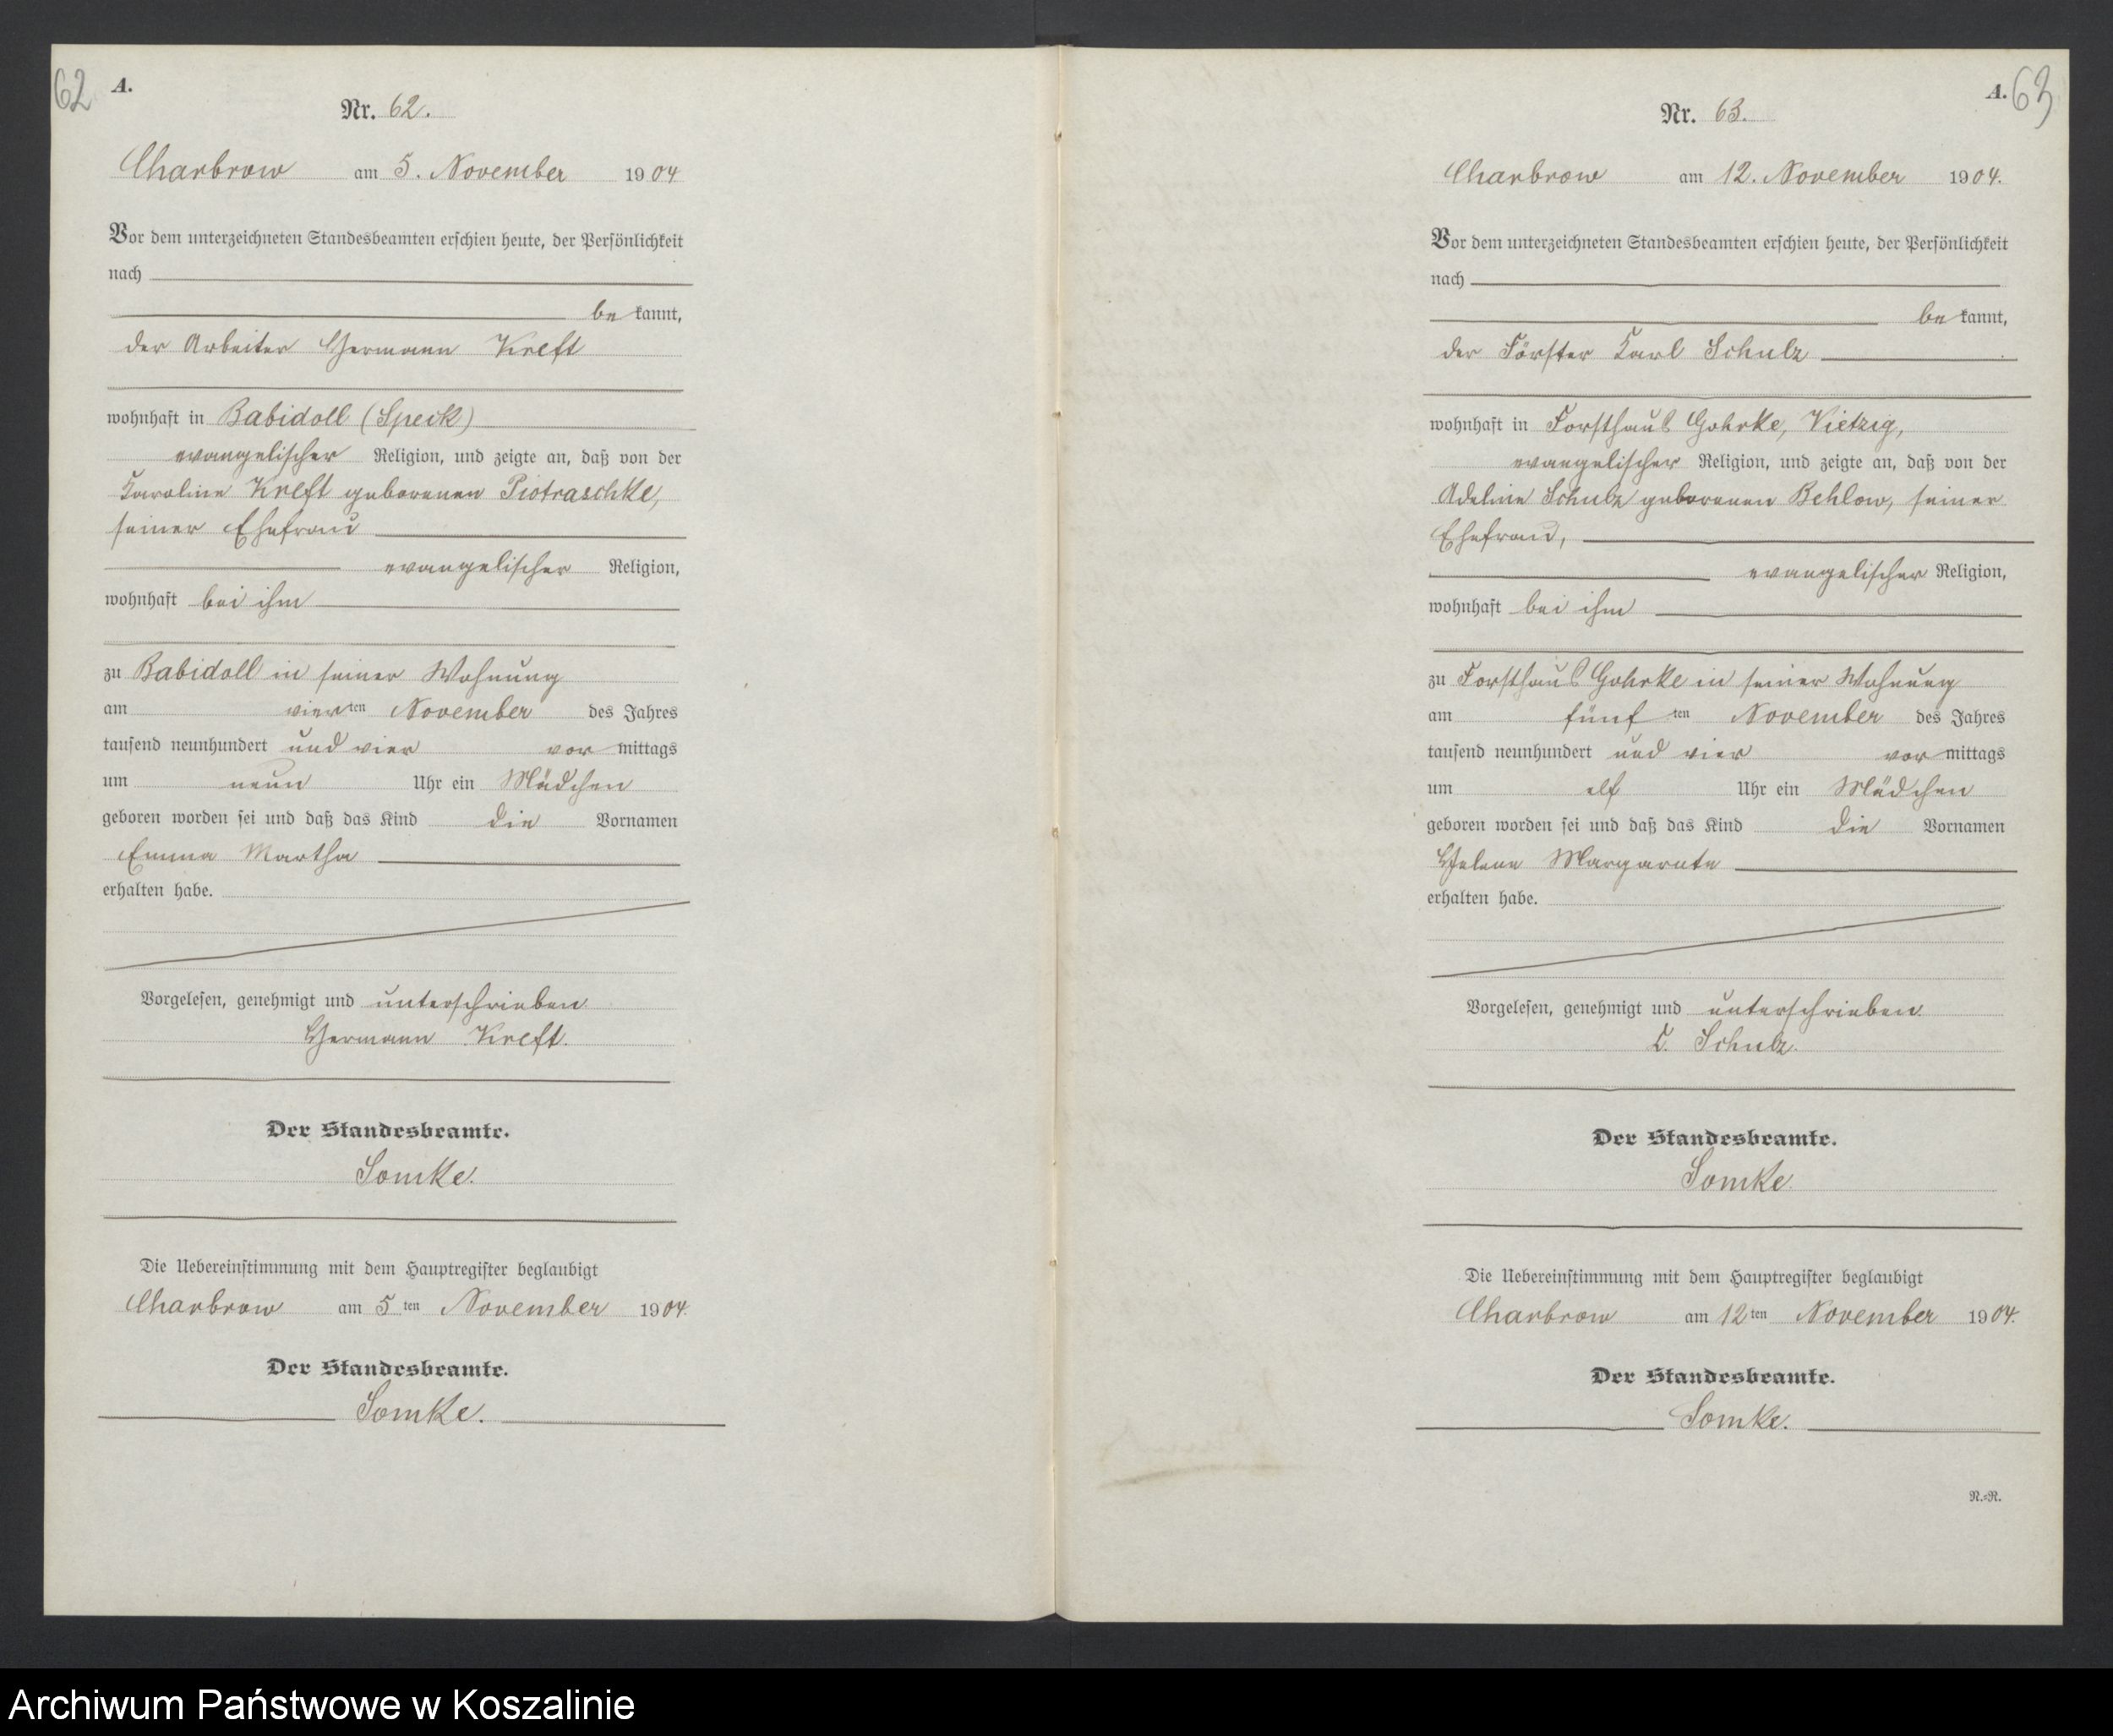 62
A.
Nr. 62.
Charbrow am 5. November 1904
Vor dem unterzeichneten Standesbeamten erschien heute, der Persönlichkeit
nach
be kannt,
der Arbeiter Hermann Kreft
wohnhaft in Babidoll (Speck)
evangelischer Religion, und zeigte an, daß von der
Karoline Kreft geborenen Piotraschke,
seiner Ehefrau
evangelischer Religion,
wohnhaft bei ihm
zu Babidoll in seiner Wohnung
am vierten November des Jahres
tausend neunhundert und vier vor mittags
um neun Uhr ein Mädchen
geboren worden sei und daß das Kind die Vornamen
Emma Martha
erhalten habe.
Vorgelesen, genehmigt und unterschrieben
Hermann Kreft.
Der Standesbeamte.
Somke.
Die Uebereinstimmung mit dem Hauptregister beglaubigt
Charbrow am 5ten November 1904.
Der Standesbeamte.
Somke.
A. 63
Nr. 63.
Charbrow am 12. November 1904.
Vor dem unterzeichneten Standesbeamten erschien heute, der Persönlichkeit
nach
be kannt,
der Förster Karl Schulz
wohnhaft in Forsthaus Gohrke, Vietzig,
evangelischer Religion, und zeigte an, daß von der
Adeline Schulz geborenen Behlow, seiner
Ehefrau,
evangelischer Religion,
wohnhaft bei ihm
zu Forsthaus Gohrke in seiner Wohnung
am fünften November des Jahres
tausend neunhundert und vier vor mittags
um elf Uhr ein Mädchen
geboren worden sei und daß das Kind die Vornamen
Helene Margarete
erhalten habe.
Vorgelesen, genehmigt und unterschrieben.
K. Schulz.
Der Standesbeamte.
Somke
Die Uebereinstimmung mit dem Hauptregister beglaubigt
Charbrow am 12ten November 1904.
Der Standesbeamte.
Somke.
R.=R.
Archiwum Państwowe w Koszalinie